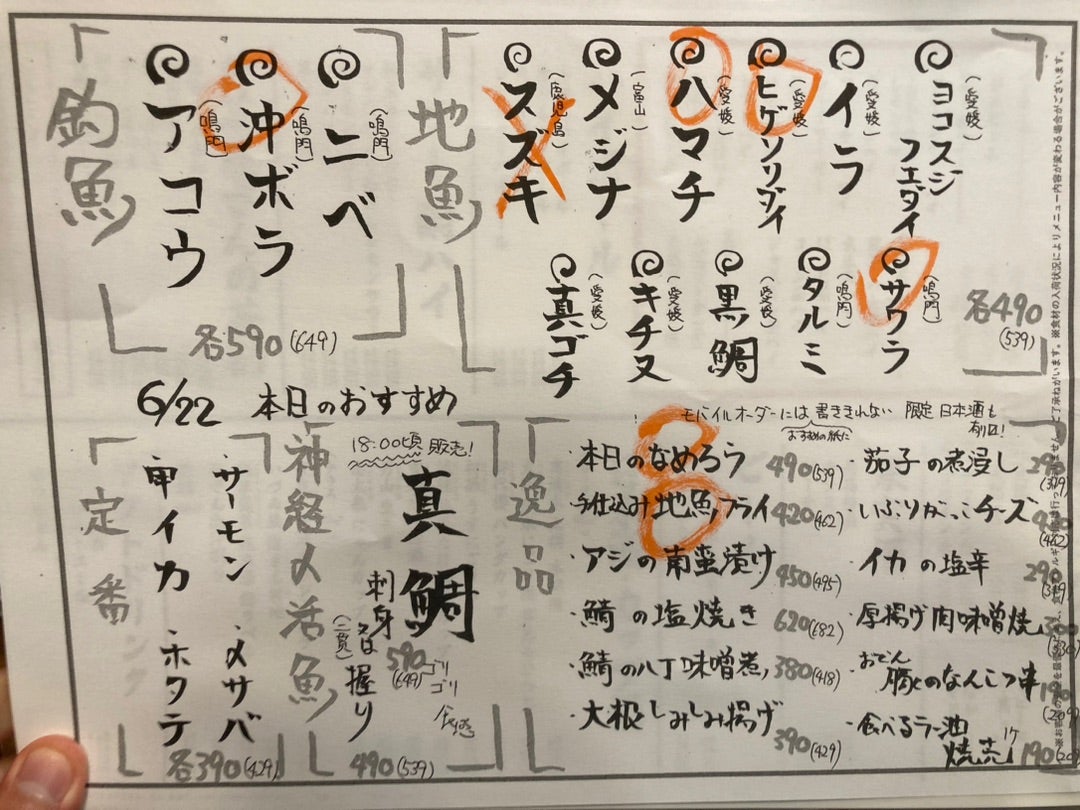 釣魚
ニベ(鳴門)
沖ボラ(鳴門)
アコウ(鳴門)
各590(649)
地魚
ヨコスジフエダイ(愛媛)
イラ(愛媛)
ヒゲソリダイ(愛媛)
ハマチ(愛媛)
メジナ(富山)
スズキ(鹿児島)
サワラ(鳴門)
タルミ(鳴門)
黒鯛(愛媛)
キチヌ(愛媛)
真ゴチ(愛媛)
各490(539)
6/22 本日のおすすめ
定番
・サーモン ・〆サバ
・甲イカ ・ホタテ
各390(429)
神経〆活魚
18:00頃販売!
真鯛
刺身 590(649)
又は
握り(二貫)
490(539)
ゴリゴリ食感
モバイルオーダーには書ききれない 限定日本酒も有り〼!
おすすめの紙に
逸品
・本日のなめろう 490(539)
・手仕込み地魚フライ 420(462)
・アジの南蛮漬け 450(495)
・鯖の塩焼き 620(682)
・鯖の八丁味噌煮 380(418)
・大根しみしみ揚げ 390(429)
・茄子の煮浸し 290(319)
・いぶりがっこチーズ 420(462)
・イカの塩辛 290(319)
・厚揚げ肉味噌焼 300(330)
・おでん 豚のなんこつ串 190(209)
・食べるラー油焼売 1ケ 190(209)
※食材の入荷状況によりメニュー内容が変わる場合がございます。